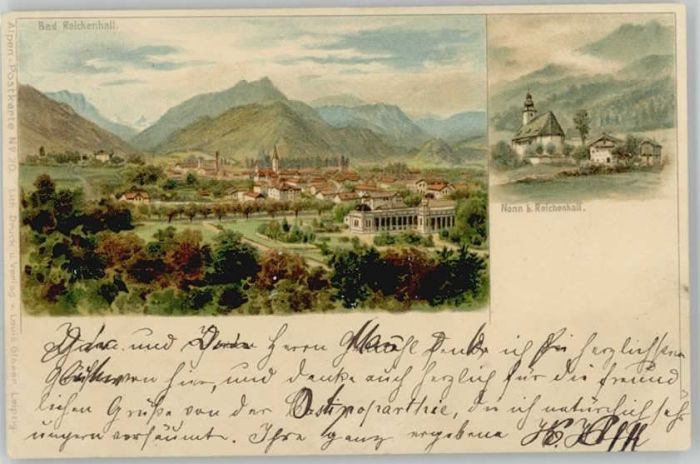 Bad Reichenhall.
Nonn b. Reichenhall.
Alpen-Postkarte No 20. Lith. Druck u. Verlag v. Louis Glaser, Leipzig.
und Herrn ich herzlichsten
von hier, und danke auch herzlich für die freund
lichen Grüße von der die ich natürlich sehr
ungern versäumte. Ihre ganz ergebene